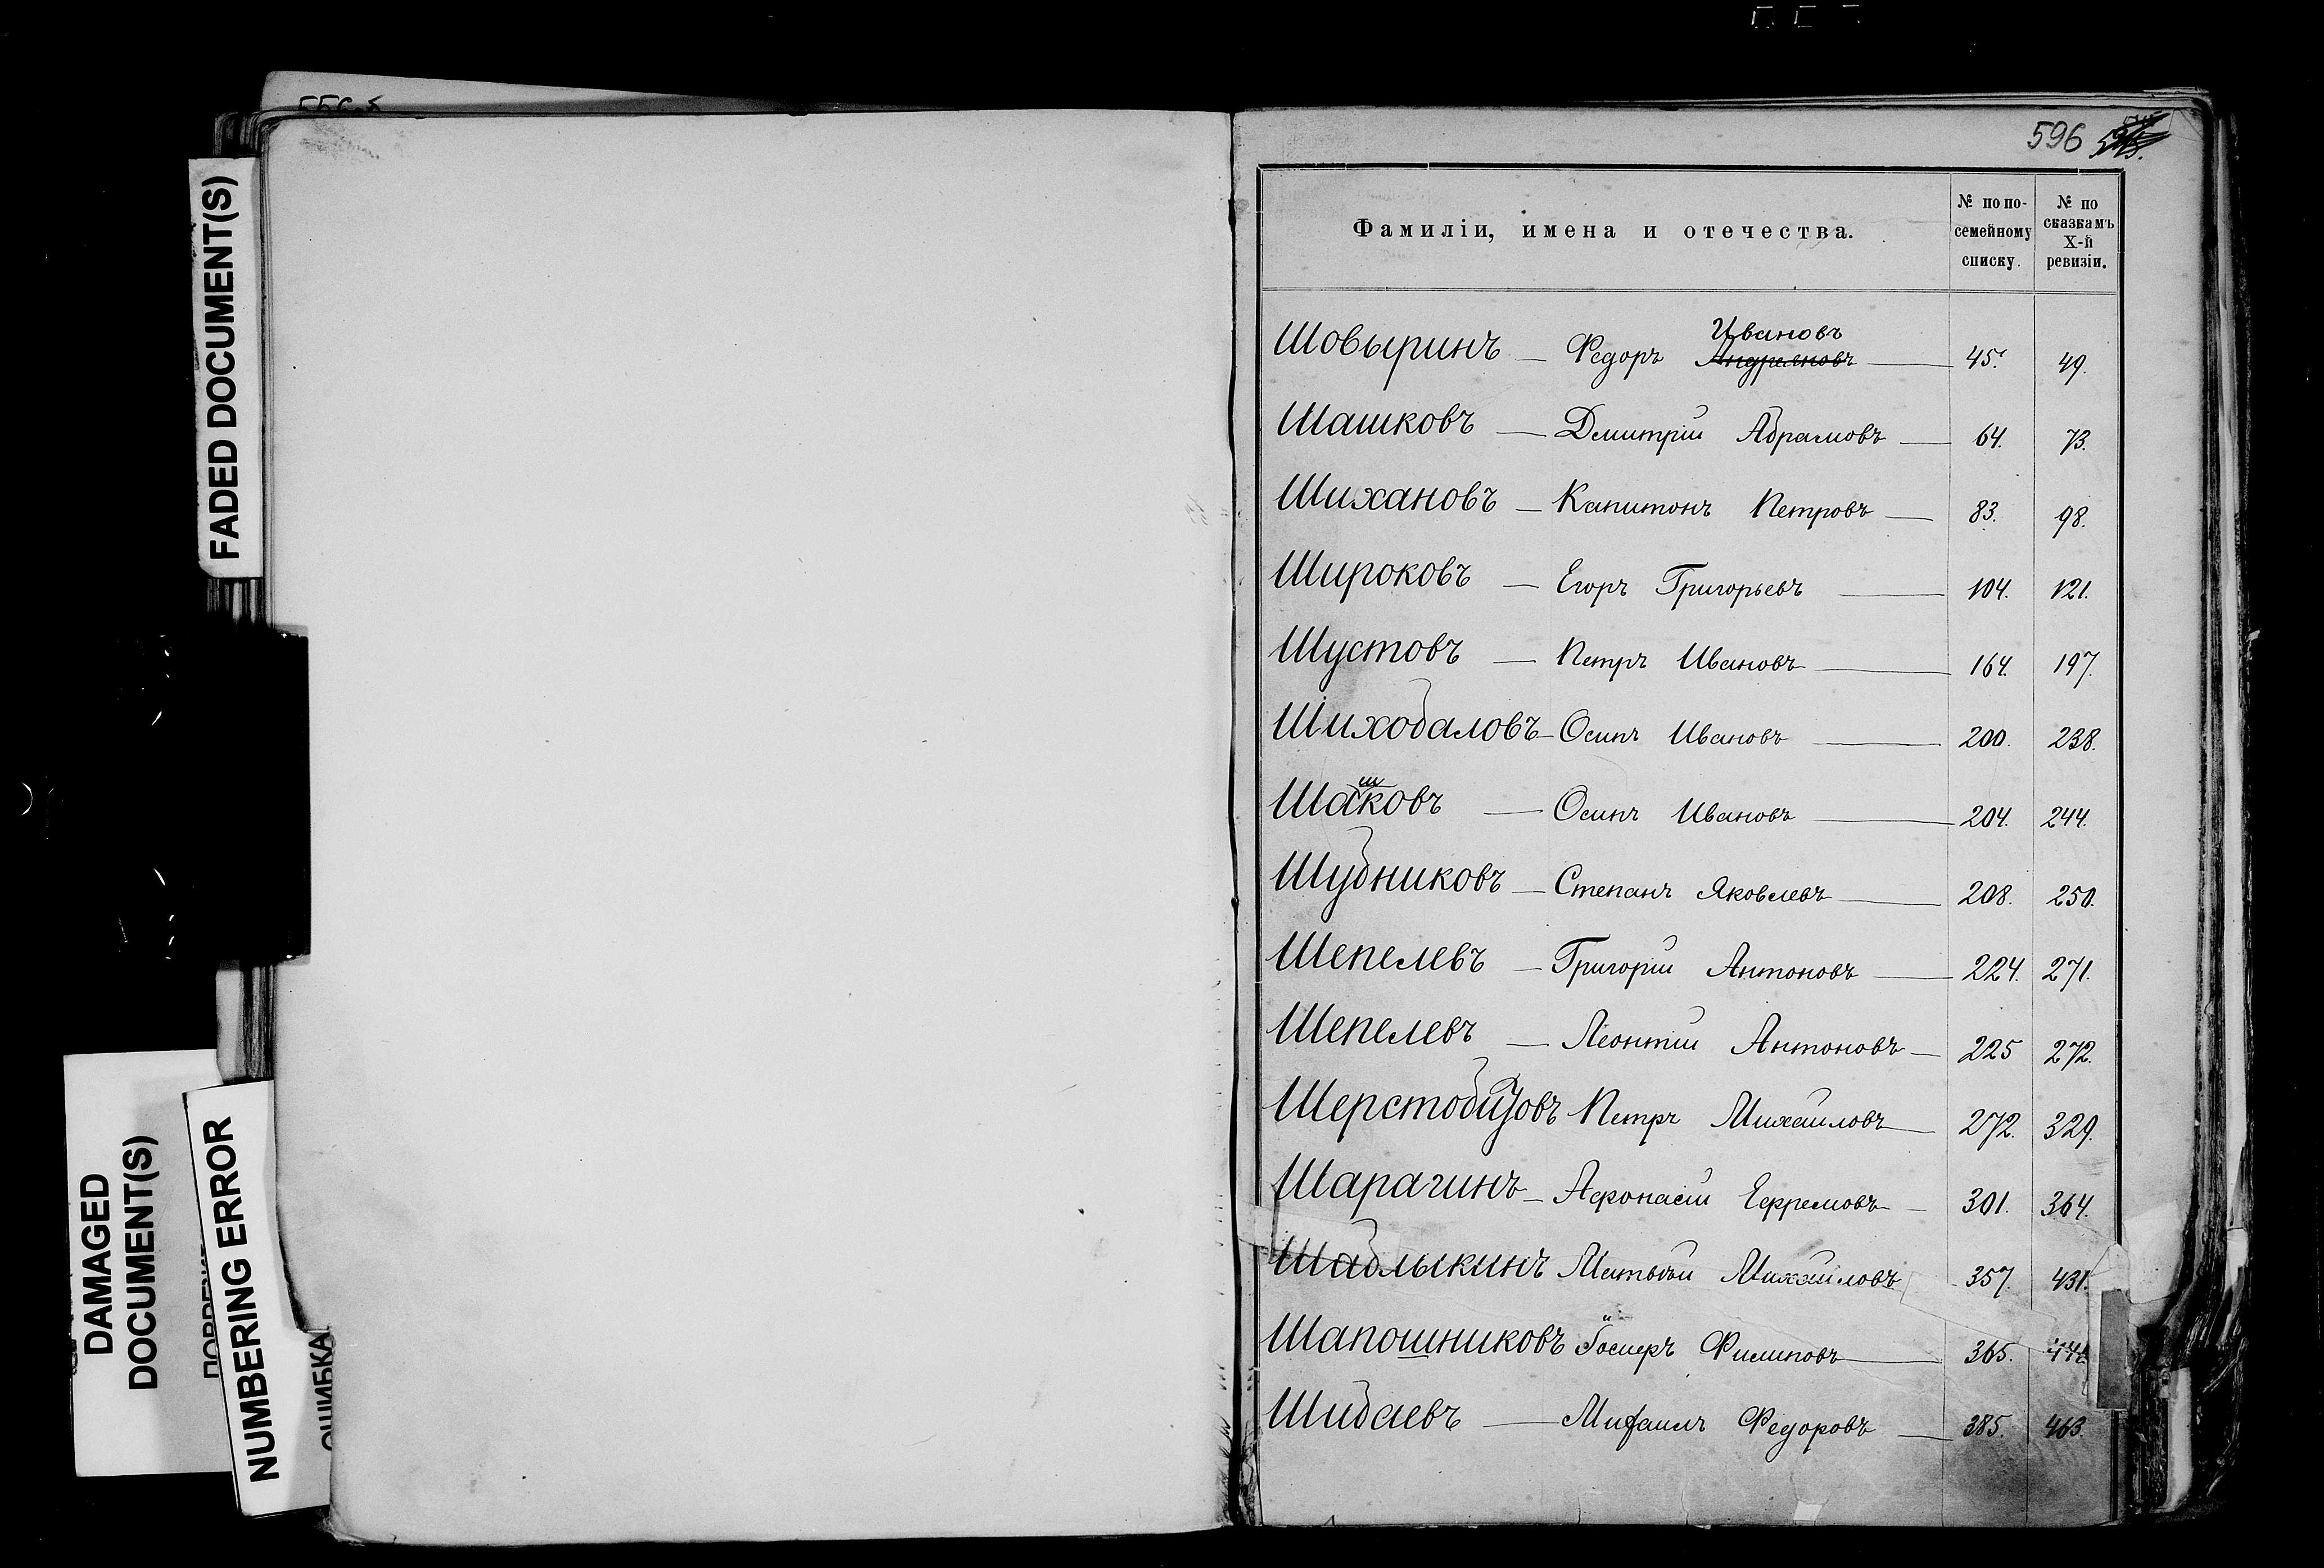 FADED DOCUMENT(S)
DAMAGED
DOCUMENT(S)
NUMBERING ERROR
ОШИБКА
596
Фамиліи, имена и отечества.
№ по по-
семейному
списку.
№ по
сказкамъ
X-й
ревизіи.
Ивановъ
Шовыринъ — Федоръ Андреяновъ — 45. 49.
Шашковъ — Дмитрій Абрамовъ — 64. 73.
Шихановъ — Капитонъ Петровъ — 83. 98.
Широковъ — Егоръ Григорьевъ — 104. 121.
Шустовъ — Петръ Ивановъ — 164. 197.
Шихобаловъ — Осипъ Ивановъ — 200. 238.
Шашковъ — Осипъ Ивановъ — 204. 244.
Шубниковъ — Степанъ Яковлевъ — 208. 250.
Шепелевъ — Григорій Антоновъ — 224. 271.
Шепелевъ — Леонтій Антоновъ — 225 272.
Шерстобитовъ Петръ Михайловъ — 272. 329.
Шарагинъ — Афонасій Ефремовъ — 301. 364.
Шаблыкинъ Матвѣй Михайловъ 357. 431.
Шапошниковъ Іосифъ Филиповъ — 365.
Шибаевъ — Михаилъ Федоровъ — 385. 463.